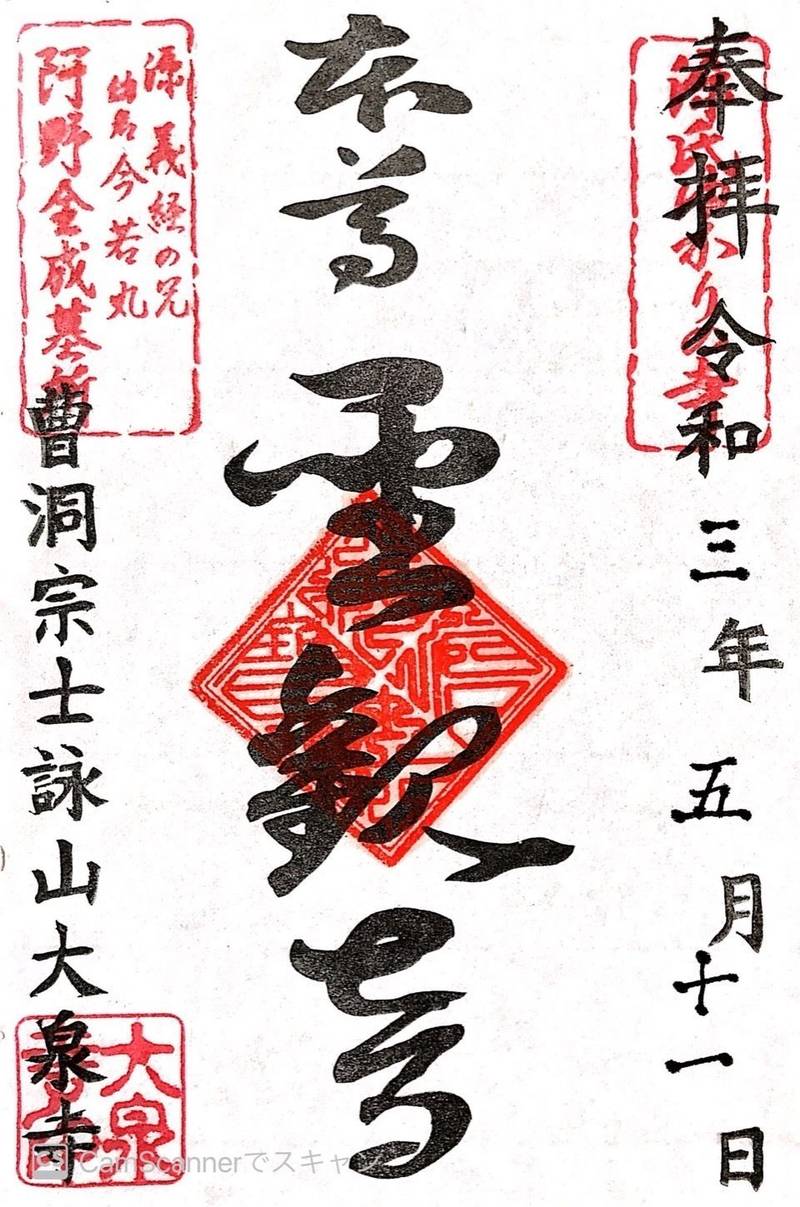 奉拝 令和三年五月十一日
源氏ゆかりの寺
本尊 聖観音
源義経の兄
幼名 今若丸
阿野全成墓所
曹洞宗士詠山大泉寺
大泉
CamScannerでスキャン